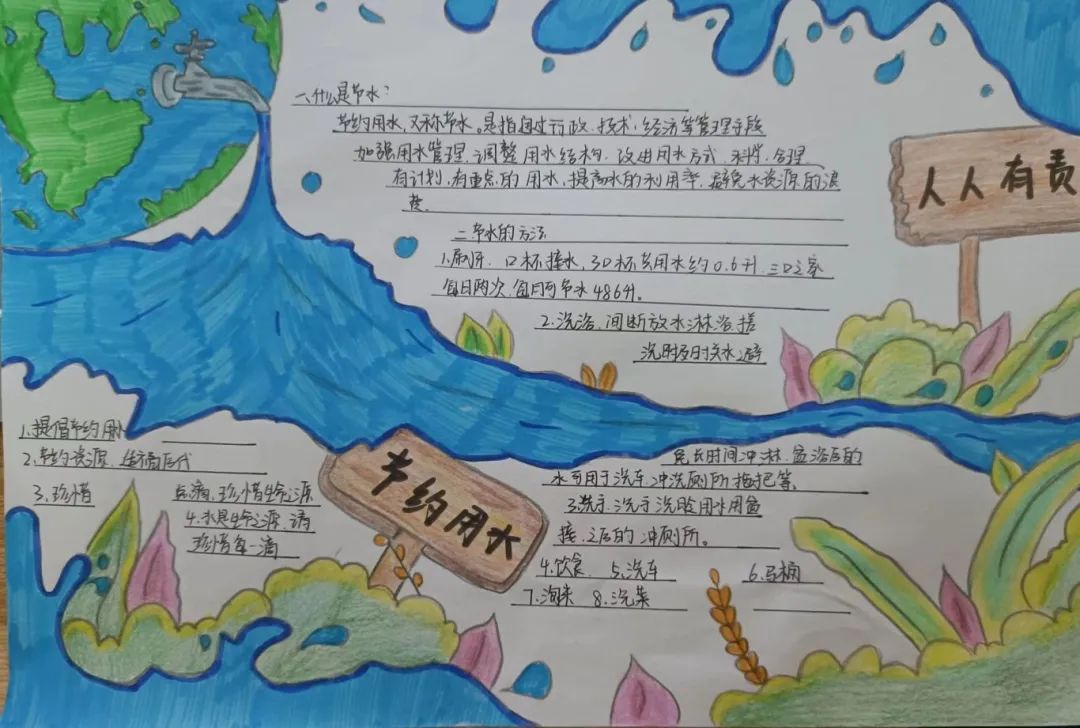 一、什么是节水?
节约用水,又称节水。是指通过行政、技术、经济等管理手段
加强用水管理,调整用水结构,改进用水方式,科学、合理、
有计划、有重点的用水,提高水的利用率,避免水资源的浪
费。
人人有责
二、节水的方法
1.刷牙、口杯接水,3口杯共用水约0.6升,三口之家
每日两次,每月可节水486升。
2.洗浴、间断放水淋浴、搓
洗时及时关水,避
免长时间冲淋、盆浴后的
水可用于洗车、冲洗厕所、拖把等。
3.洗手、洗手洗脸用水用盆
接、之后的冲厕所。
4.饮食、 5.洗车 6.马桶
7.淘米 8.洗菜
节约用水
1.提倡节约用水
2.节约资源、造福后代
3.珍惜 点滴,珍惜生命之源
4.水是生命之源,请
珍惜每一滴